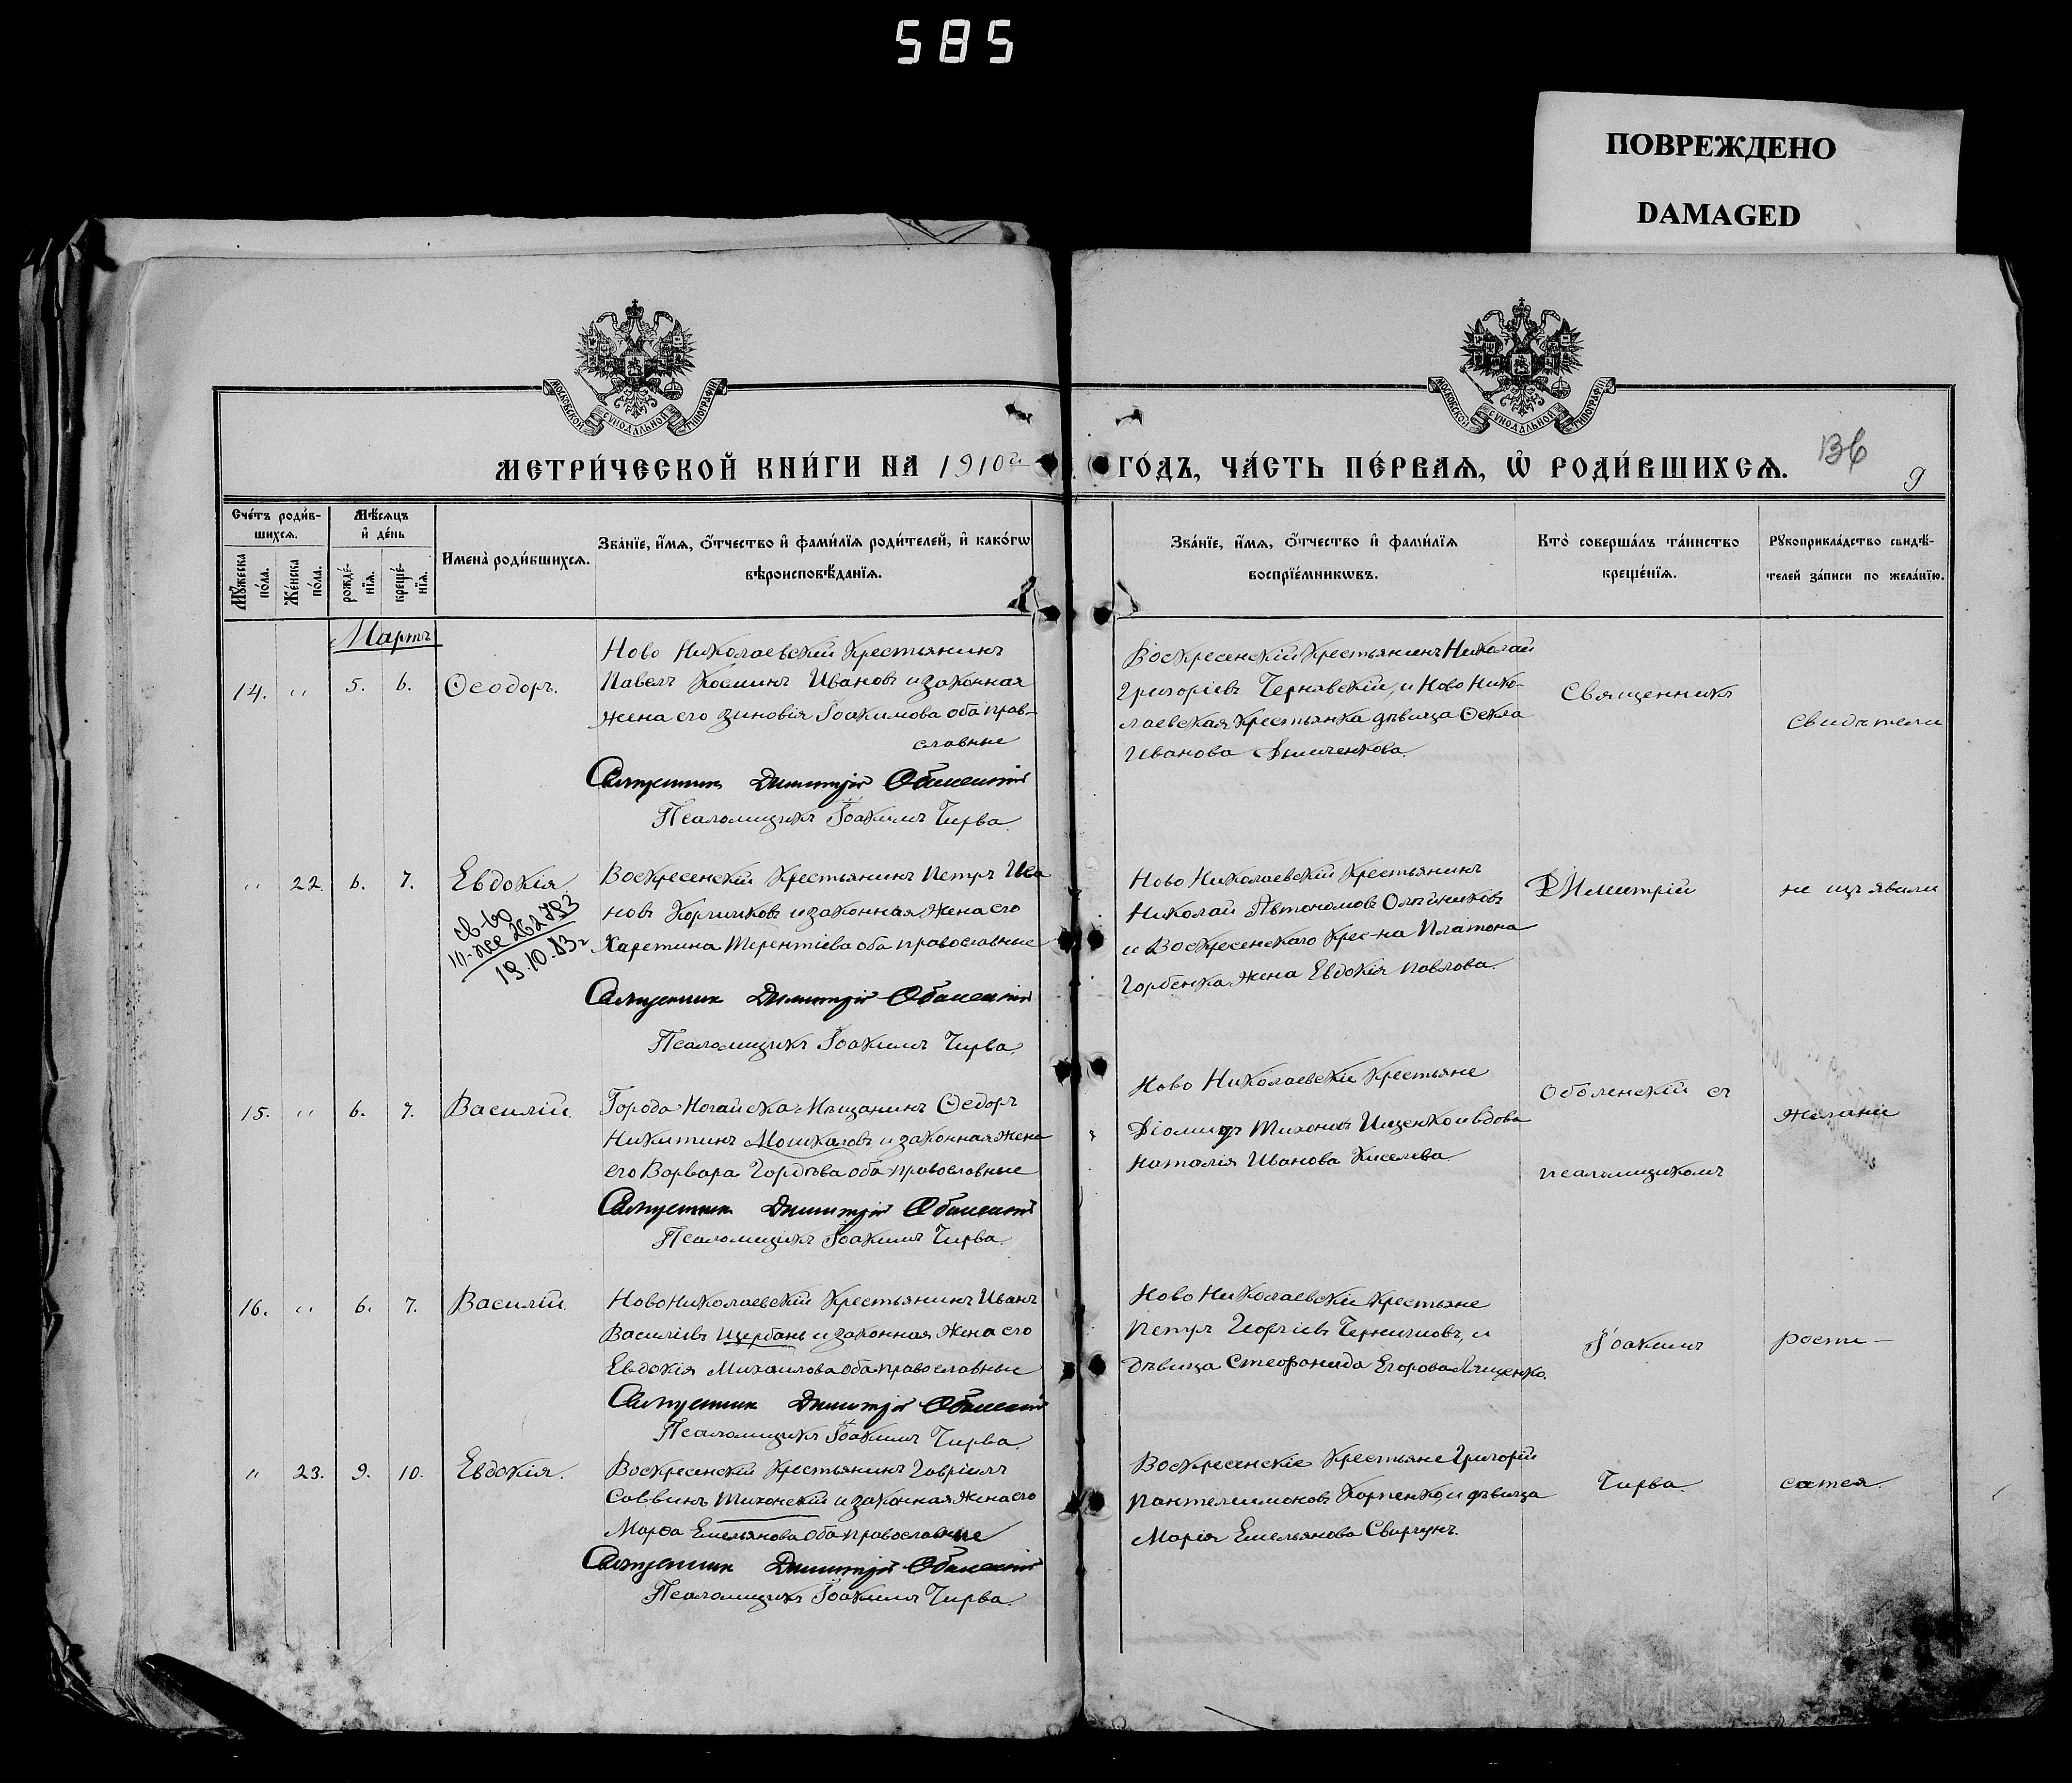 585
ПОВРЕЖДЕНО
DAMAGED
МОСКОВСКОЙ СѴНОДАЛЬНОЙ ТИПОГРАФІИ
МОСКОВСКОЙ СѴНОДАЛЬНОЙ ТИПОГРАФІИ
МЕТРИ́ЧЕСКОЙ КНИ́ГИ НА 1910й
ГО́ДЪ, ЧА́СТЬ ПЕ́РВАЯ, Ѡ РОДИ́ВШИХСЯ.
136
9
Сче́тъ роди́вшихся.
Мѣ́сяцъ и де́нь
Мꙋ́жеска по́ла.
Же́нска по́ла.
рожде́нїя.
креще́нїя.
Имена̀ роди́вшихся.
Зва́нїе, и́мя, о́тчество и фами́лїя роди́телей, и како́гѡ
вѣроисповѣ́данїя.
Зва́нїе, и́мя, о́тчество и фами́лїя
воспрїе́мникѡвъ.
Кто̀ соверша́лъ та́инство
креще́нїя.
Рꙋкоприкла́дство свидѣ́-
телей за́писи по жела́нїю.
Мартъ
14. " 5. 6. Ѳеодоръ.
Ново Николаевскій Крестьянинъ
Павелъ Косминъ Ивановъ и законная
жена его Зиновія Іоакимова оба прав-
славные
Священникъ Димитрій Оболенскій
Псаломщикъ Іоакимъ Чирва.
Воскресенскій Крестьянинъ Николай
Григоріевъ Чернавскій, и Ново Нико-
лаевская Крестьянка дѣвица Ѳекла
Иванова
Священникъ
Свидѣтели
" 22. 6. 7. Евдокія.
св-во
19.10.83г
Воскресенскій Крестьянинъ Петръ Ива
новъ и законная Жена его
Харетина Терентіева оба православные
Священник Димитрій Оболенскій
Псаломщикъ Іоакимъ Чирва.
Ново Николаевскій Крестьянинъ
Николай Автономовъ Олейниковъ
и Воскресенскаго Крес-на Платона
Горбенка Жена Евдокія Павлова.
Димитрій
не изъявили
15. " 6. 7. Василій.
Города Ногайска Мѣщанинъ Ѳедоръ
Никитинъ Мошкаловъ и законная жена
его Варвара Гордѣева оба православные
Священник Димитрій Оболенскій
Псаломщикъ Іоакимъ Чирва.
Ново Николаевскіе Крестьяне
Діомидъ Тихоновъ Ищенко и вдова
Наталія Иванова Киселева
Оболенскій съ
псаломщикомъ
желаніе
16. " 6. 7. Василій.
Ново Николаевскій Крестьянинъ Иванъ
Василіевъ Щербань и законная Жена его
Евдокія Михаилова оба православные
Священник Димитрій Оболенскій
Псаломщикъ Іоакимъ Чирва.
Ново Николаевскіе Крестьяне
Петръ Георгіевъ и
дѣвица Стефанида Егорова Лященко.
Іоакимъ
роспи-
" 23. 9. 10. Евдокія.
Воскресенскій Крестьянинъ Гавріилъ
Саввинъ Тихонскій и законная Жена его
Марѳа Емельянова оба православные
Священник Димитрій Оболенскій
Псаломщикъ Іоакимъ Чирва.
Воскресенскіе Крестьяне Григорій
Пантелеимоновъ Карпенко, и дѣвица
Марія Емельянова Свиргунъ.
Чирва.
сатся.